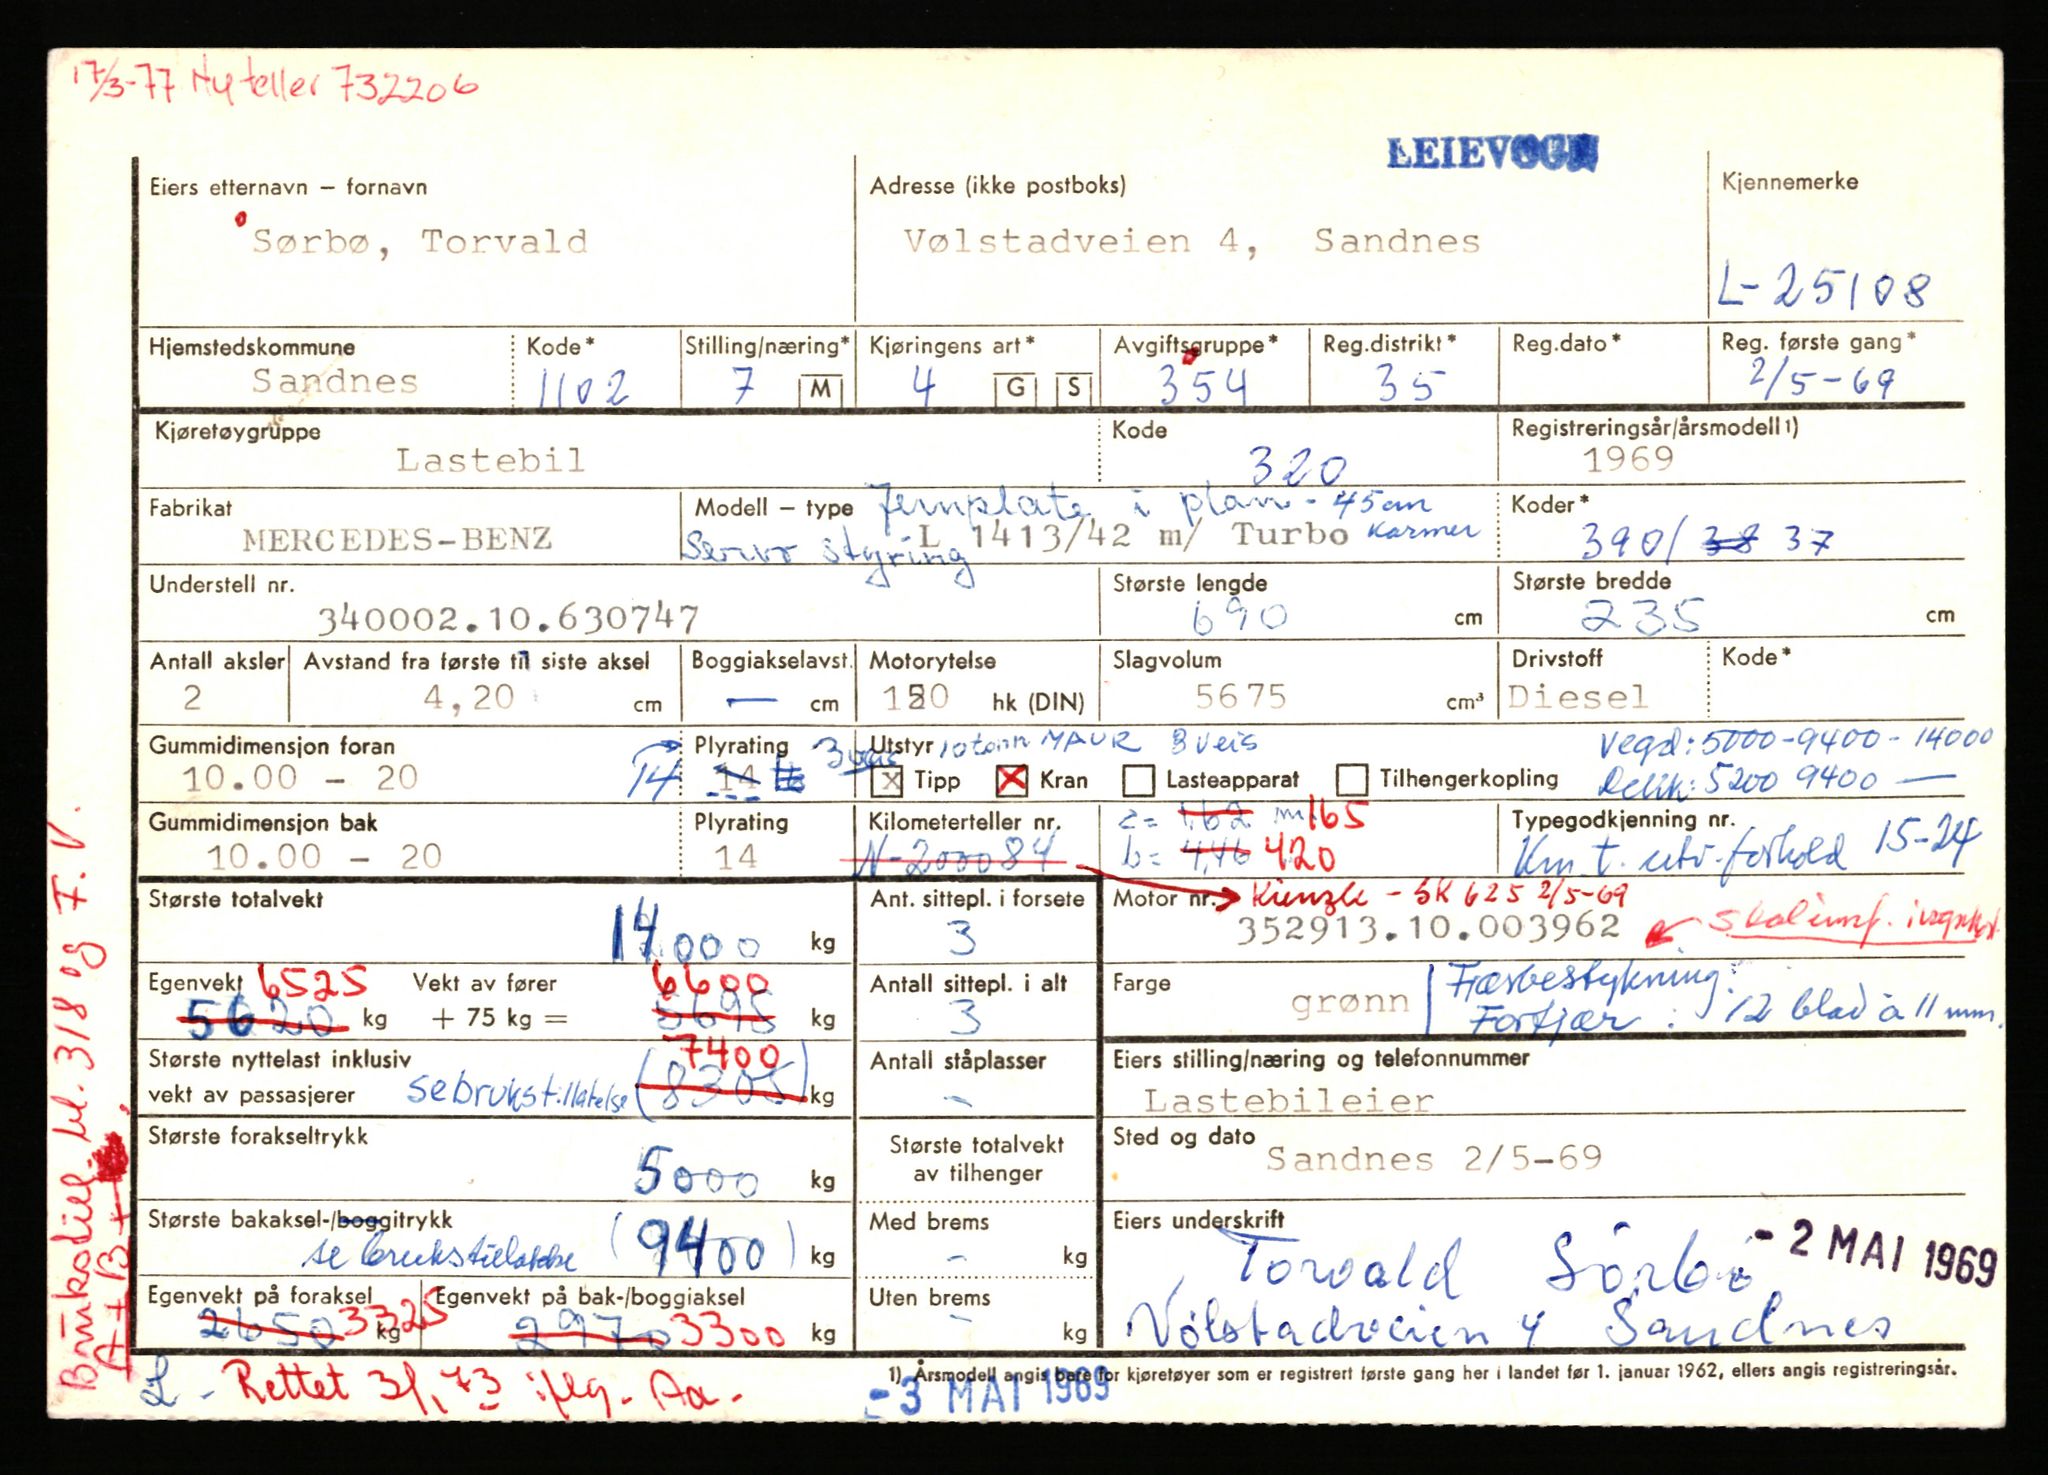 17/3-77 Ny teller 732206
LEIEVOGN
Eiers etternavn – fornavn
Sørbø, Torvald
Adresse (ikke postboks)
Vølstadveien 4, Sandnes
Kjennemerke
L-25108
Hjemstedskommune
Sandnes
Kode*
1102
Stilling/næring*
7 M
Kjøringens art*
4 G S
Avgiftsgruppe*
354
Reg.distrikt*
35
Reg.dato*
Reg. første gang*
2/5-69
Kjøretøygruppe
Lastebil
Kode
320
Registreringsår/årsmodell 1)
1969
Fabrikat
MERCEDES-BENZ
Modell – type Jernplate i plan - 45cm
L 1413/42 m/ Turbo Karmer
Servo styring
Koder*
390/ 38 37
Understell nr.
340002.10.630747
Største lengde
690 cm
Største bredde
235 cm
Antall aksler
2
Avstand fra første til siste aksel
4,20 cm
Boggiakselavst.
— cm
Motorytelse
150 hk (DIN)
Slagvolum
5675 cm³
Drivstoff
Diesel
Kode*
Gummidimensjon foran
10.00 - 20
Plyrating
14 14 3 veis
Utstyr 10 tonn MAUR 3 veis
x Tipp X Kran Lasteapparat Tilhengerkopling
Vegd: 5000-9400-14000
5200 9400 —
Gummidimensjon bak
10.00 - 20
Plyrating
14
Kilometerteller nr.
N-200084
a = 1,62 m 165
b = 4,46 420
Typegodkjenning nr.
Km.t. utv-forhold 15-24
Største totalvekt
14000 kg
Ant. sittepl. i forsete
3
Motor nr. → Kienzle - SK 625 2/5-69
352913.10.003962
Egenvekt 6525
5620 kg
Vekt av fører 6600
+ 75 kg = 5695 kg
Antall sittepl. i alt
3
Farge
grønn
Færbestykning:
Forfjær: 12 blad a 11 mm.
Største nyttelast inklusiv 7400
vekt av passasjerer se brukstillatelse (8305) kg
Antall ståplasser
-
Eiers stilling/næring og telefonnummer
Lastebileier
Største forakseltrykk
5000 kg
Største totalvekt
av tilhenger
Sted og dato
Sandnes 2/5-69
Største bakaksel-/boggitrykk
se brukstillatelse (9400) kg
Med brems
- kg
Eiers underskrift
Torvald Sörbö
Vølstadveien 4 Sandnes
- 2 MAI 1969
Egenvekt på foraksel
2650 3325 kg
Egenvekt på bak-/boggiaksel
2970 3300 kg
Uten brems
- kg
L - Rettet 3/1, 73 iflg. Aa -
1) Årsmodell angis bare for kjøretøyer som er registrert første gang her i landet før 1. januar 1962, ellers angis registreringsår.
-3 MAI 1969
Brukstill. bl. 318 og F.V.
A + B +